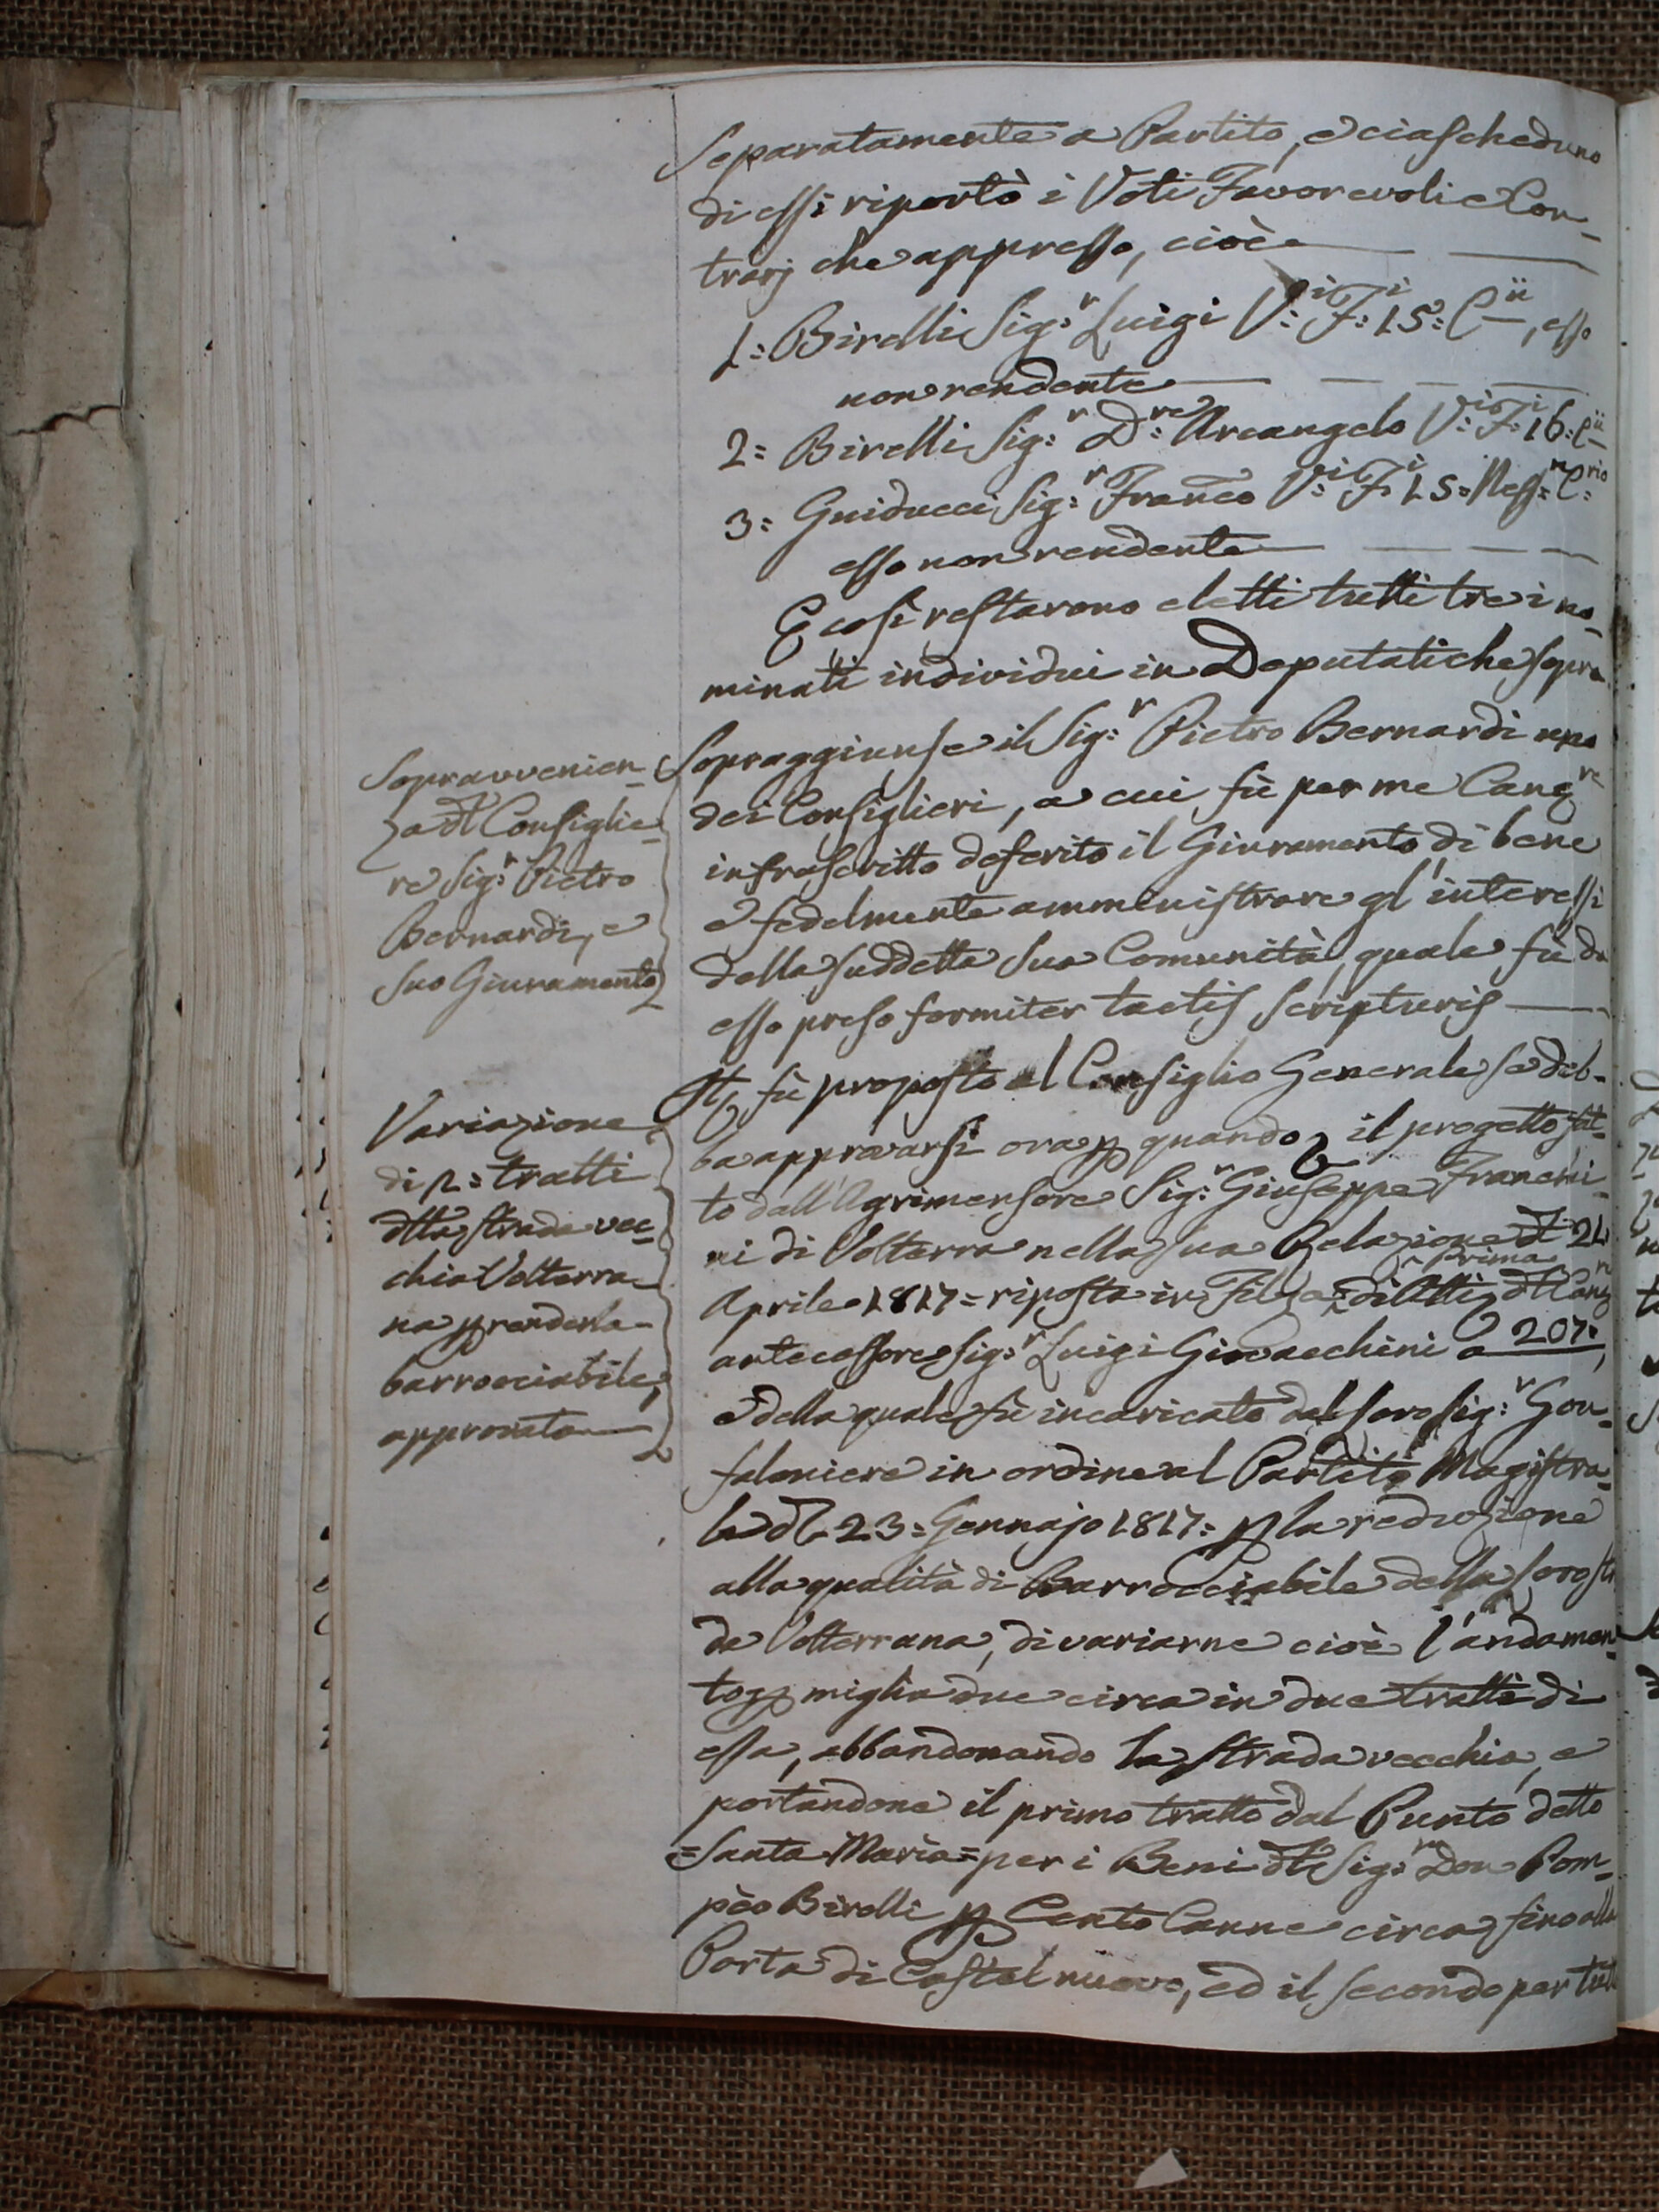 Separatamente a Partito, e ciascheduno
di essi riportò i Voti Favorevoli e Con-
trarj che appresso, cioè
1: Birelli Sig:r Luigi V:i F:i 15: C ii, esso
non rendente
2: Birelli Sig:r D:re Arcangelo V:i F:i 16: C ii
3: Guiducci Sig:r Franco V:i F:i 15: Ness:n C:rio
esso non rendente
E così restarono eletti tutti tre i no-
minati individui in Deputati che sopra
Sopravvenien-
za dl Consiglie-
re Sig:r Pietro
Bernardi, e
suo Giuramento
Sopraggiunse il Sig:r Pietro Bernardi uno
dei Consiglieri, a cui fù per me Canre
infrascritto deferito il Giuramento di bene
e fedelmente amministrare gl'interessi
della suddetta sua Comunità, quale fù da
esso preso formiter tactis scripturis
Variazione
di 2: tratti
dlla strada vec-
chia Volterra-
na p renderla
barrocciabile,
approvata
It, fù proposto al Consiglio Generale se deb-
ba approvarsi ora p quando il progetto fat-
to dall'Agrimensore Sig:r Giuseppe Franchi-
ni di Volterra nella sua Relazione dl 21
Aprile 1817= riposta in Filza prima di Atti dl Canre
antecessore Sig:r Luigi Giovacchini a 207:,
e della quale fù incaricato dal loro Sig:r Gon-
faloniere in ordine al Partito Magistra-
le dl 23= Gennajo 1817: p la reduzione
alla qualità di Barrocciabile della loro stra
da Volterrana, di variarne cioè l'andamen-
to p miglia due circa in due tratti di
essa, abbandonando la strada vecchia, e
portandone il primo tratto dal Punto detto
=Santa Maria= per i Beni dl Sig: Don Pom-
pèo Birelli p Cento Canne circa fino alla
Porta di Castelnuovo, ed il secondo per